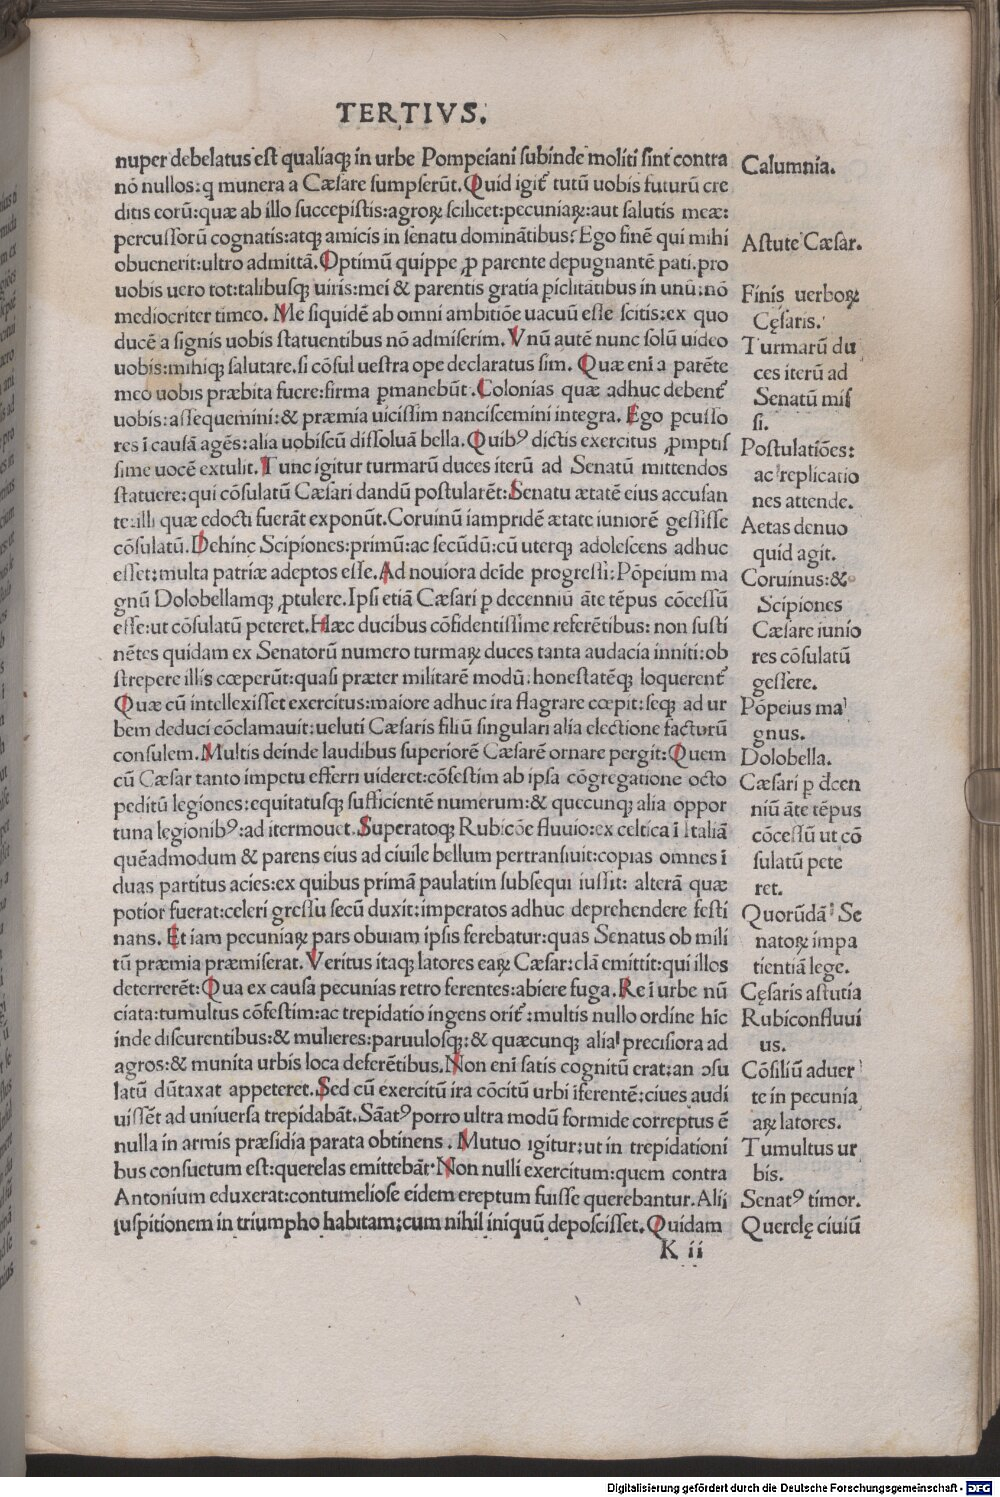 TERTIVS.
nuper debelatus est qualiaqꝫ in urbe Pompeiani subinde moliti sint contra
nō nullos: q munera a Cæsare sumpserūt. Quid igit᷑ tutū uobis futurū cre
ditis eorū: quæ ab illo succepistis: agroꝝ scilicet: pecuniaꝝ: aut salutis meæ:
percussorū cognatis: atqꝫ amicis in senatu dominātibus? Ego finē qui mihi
obuenerit: ultro admittā. Optimū quippe ꝓ parente depugnantē pati. pro
uobis uero tot: talibusqꝫ uiris: mei & parentis gratia piclitātibus in unū: nō
mediocriter timeo. Me siquidē ab omni ambitiōe uacuū esse scitis: ex quo
ducē a signis uobis statuentibus nō admiserim. Vnū autē nunc solū uideo
uobis: mihiqꝫ salutare. si cōsul uestra ope declaratus sim. Quæ eni a parēte
meo uobis præbita fuere: firma ꝑmanebūt. Colonias quæ adhuc debent᷑
uobis: assequemini: & præmia uicissim nanciscemini integra. Ego ꝑcusso
res ī causā agēs: alia uobiscū dissoluā bella. Quibꝰ dictis exercitus ꝓmptis
sime uocē extulit. Tunc igitur turmarū duces iterū ad Senatū mittendos
statuere: qui cōsulatū Cæsari dandū postularēt: Senatu ætatē eius accusan
te: illi quæ edocti fuerāt exponūt. Coruinū iampridē ætate iuniorē gessisse
cōsulatū. Dehinc Scipiones: primū: ac secūdū: cū uterqꝫ adolescens adhuc
esset: multa patriæ adeptos esse. Ad nouiora deīde progressi: Pōpeium ma
gnū Dolobellamqꝫ ꝓtulere. Ipsi etiā Cæsari ꝑ decenniū āte tēpus cōcessū
esse: ut cōsulatū peteret. Hæc ducibus cōfidentissime referētibus: non susti
nētes quidam ex Senatorū numero turmaꝝ duces tanta audacia inniti: ob
strepere illis cœperūt: quasi præter militarē modū: honestatēqꝫ loquerent᷑
Quæ cū intellexisset exercitus: maiore adhuc ira flagrare cœpit: seqꝫ ad ur
bem deduci cōclamauit: ueluti Cæsaris filiū singulari alia electione facturū
consulem. Multis deinde laudibus superiorē Cæsarē ornare pergit: Quem
cū Cæsar tanto impetu efferri uideret: cōfestim ab ipsa cōgregatione octo
peditū legiones: equitatusqꝫ sufficientē numerum: & quecunqꝫ alia oppor
tuna legionibꝰ: ad iter mouet. Superatoqꝫ Rubicōe fluuio: ex celtica ī Italiā
quēadmodum & parens eius ad ciuile bellum pertransiuit: copias omnes ī
duas partitus acies: ex quibus primā paulatim subsequi iussit: alterā quæ
potior fuerat: celeri gressu secū duxit: imperatos adhuc deprehendere festi
nans. Et iam pecuniaꝝ pars obuiam ipsis ferebatur: quas Senatus ob mili
tū præmia præmiserat. Veritus itaqꝫ latores eaꝝ Cæsar: clā emittit: qui illos
deterrerēt: Qua ex causa pecunias retro ferentes: abiere fuga. Re ī urbe nū
ciata: tumultus cōfestim: ac trepidatio ingens orit᷑: multis nullo ordine hic
inde discurentibus: & mulieres: paruulosqꝫ: & quæcunqꝫ alia precisiora ad
agros: & munita urbis loca deferētibus. Non eni satis cognitū erat: an ↄsu
latū dūtaxat appeteret. Sed cū exercitū ira cōcitū urbi iferentē: ciues audi
uissēt ad uniuersa trepidabāt. Sāatꝰ porro ultra modū formide correptus ē
nulla in armis præsidia parata obtinens. Mutuo igitur: ut in trepidationi
bus consuetum est: querelas emittebāt. Non nulli exercitum: quem contra
Antonium eduxerat: contumeliose eidem ereptum fuisse querebantur. Alii
suspitionem in triumpho habitam: cum nihil iniquū deposcisset. Quidam
K ii
Calumnia.
Astute Cæsar.
Finis uerboꝝ
Cęsaris.
Turmarū du
ces iterū ad
Senatū mis
si.
Postulatiōes:
ac replicatio
nes attende.
Aetas denuo
quid agit.
Coruinus: &
Scipiones
Cæsare iunio
res cōsulatū
gessere.
Pōpeius ma
gnus.
Dolobella.
Cæsari ꝑ decen
niū āte tēpus
cōcessū ut cō
sulatū pete
ret.
Quorūdā Se
natoꝝ impa
tientiā lege.
Cęsaris astutia
Rubicon fluui
us.
Cōsiliū aduer
te in pecunia
aꝝ latores.
Tumultus ur
bis.
Senatꝰ timor.
Querelę ciuiū
Digitalisierung gefördert durch die Deutsche Forschungsgemeinschaft - DFG